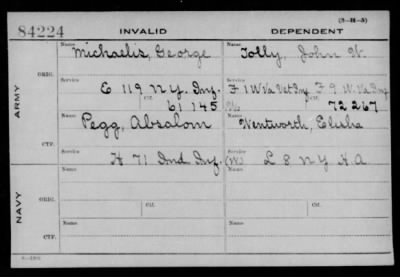 84224 INVALID DEPENDENT (3-H-5)
Name Name
Michaelis, George Jolly, John W.
ARMY
ORIG.
Service Service
E 119 N.Y. Inf. F 1 W Va Vet Inf F 9 W. Va Inf
Ctf. Ctf.
61 145 72 267
Name Name
Pegg, Absalom Wentworth, Elisha
CTF.
Service Service
H 71 Ind Inf. (W) L 8 N Y H A
NAVY
ORIG.
Name Name
Ctf. Ctf.
CTF.
Name Name